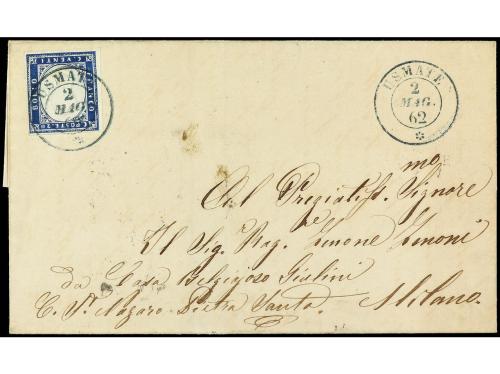 FRANCO
C. VENTI
BOLLO
POSTE 20
USMATE
2
MAG.
USMATE
2
MAG.
62
mo
Al Pregiatiss. Signore
Il Sig. Rag. Zenone Zenoni
da Casa Belgiojoso Giulini
C. St. Nazaro Pietra Santa.
Milano.